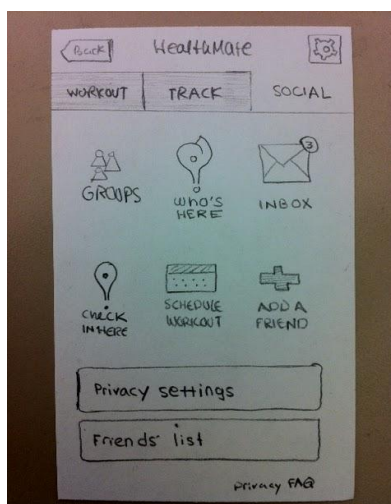 Back HealthMate
WORKOUT TRACK SOCIAL
3
GROUPS WHO'S HERE INBOX
CHECK IN HERE SCHEDULE WORKOUT ADD A FRIEND
Privacy settings
Friends' list
Privacy FAQ